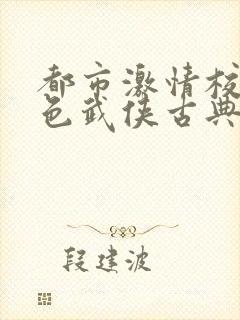 都市激情校
色武侠古典
段建波